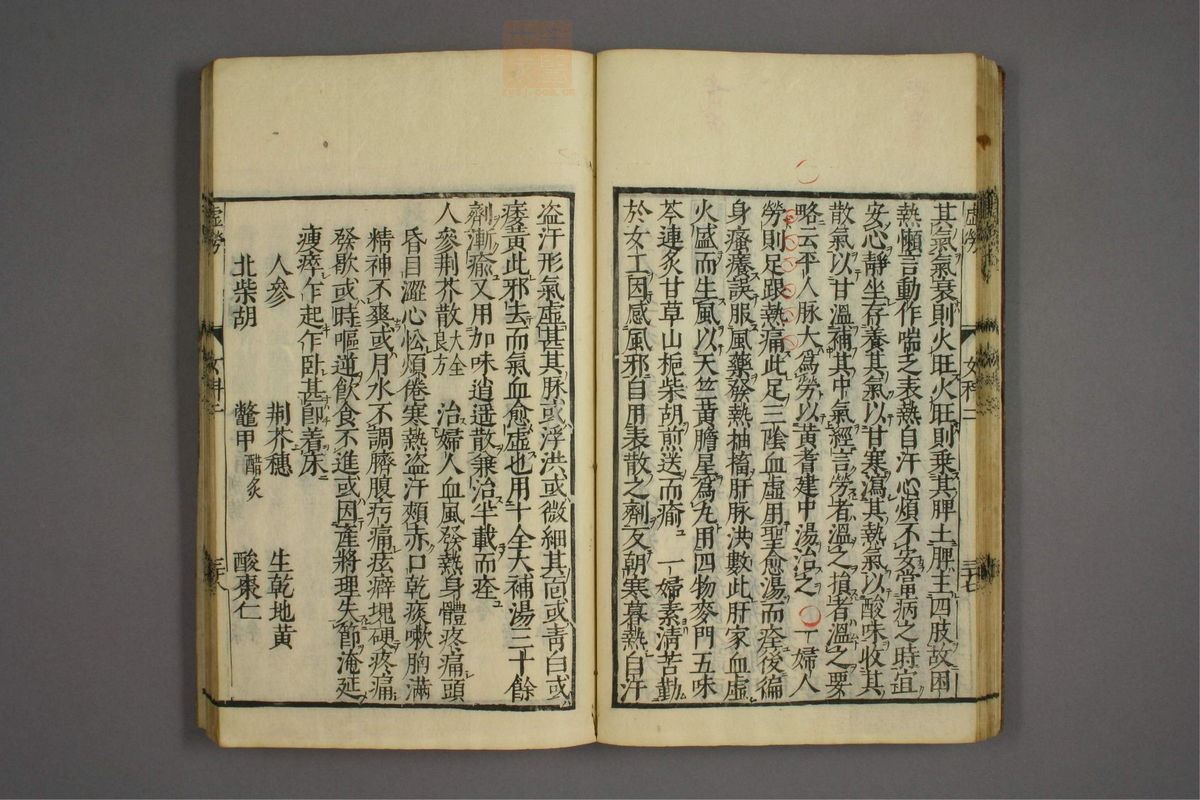 虛勞　女科二　三十七
其氣氣衰則火旺火旺則乗其脾土脾主四肢故困
熱懶言動作喘乏表熱自汗心煩不安當病之時宜
安心靜坐存養其氣以甘寒瀉其熱氣以酸味收其
散氣以甘溫補其中氣經言勞者溫之損者溫之要
略云平人脉大為勞以黃耆建中湯治之　一婦人
勞則足跟熱痛此足三陰血虛用聖愈湯而痊後徧
身瘙癢誤服風藥發熱抽搐肝脉洪數此肝家血虛
火盛而生風以天竺黃膽星為丸用四物麥門五味
芩連炙甘草山梔柴胡煎送而瘉　一婦素淸苦勤
於女工因感風邪自用表散之劑反朝寒暮熱自汗
盜汗形氣虛甚其脉或浮洪或微細其面或靑白或
痿黃此邪去而氣血愈虛也用十全大補湯三十餘
劑漸瘉又用加味逍遙散兼治半載而痊
人參荆芥散大全良方　治婦人血風發熱身體疼痛頭
昏目澀心忪煩倦寒熱盜汗頰赤口乾痰嗽胸滿
精神不爽或月水不調臍腹㽲痛痃癖塊硬疼痛
發歇或時嘔逆飮食不進或因產將理失節淹延
瘦瘁乍起乍卧甚卽着床
人參　荆芥穗　生乾地黃
北柴胡　鼈甲醋炙　酸棗仁
虛勞　女科二　三十八